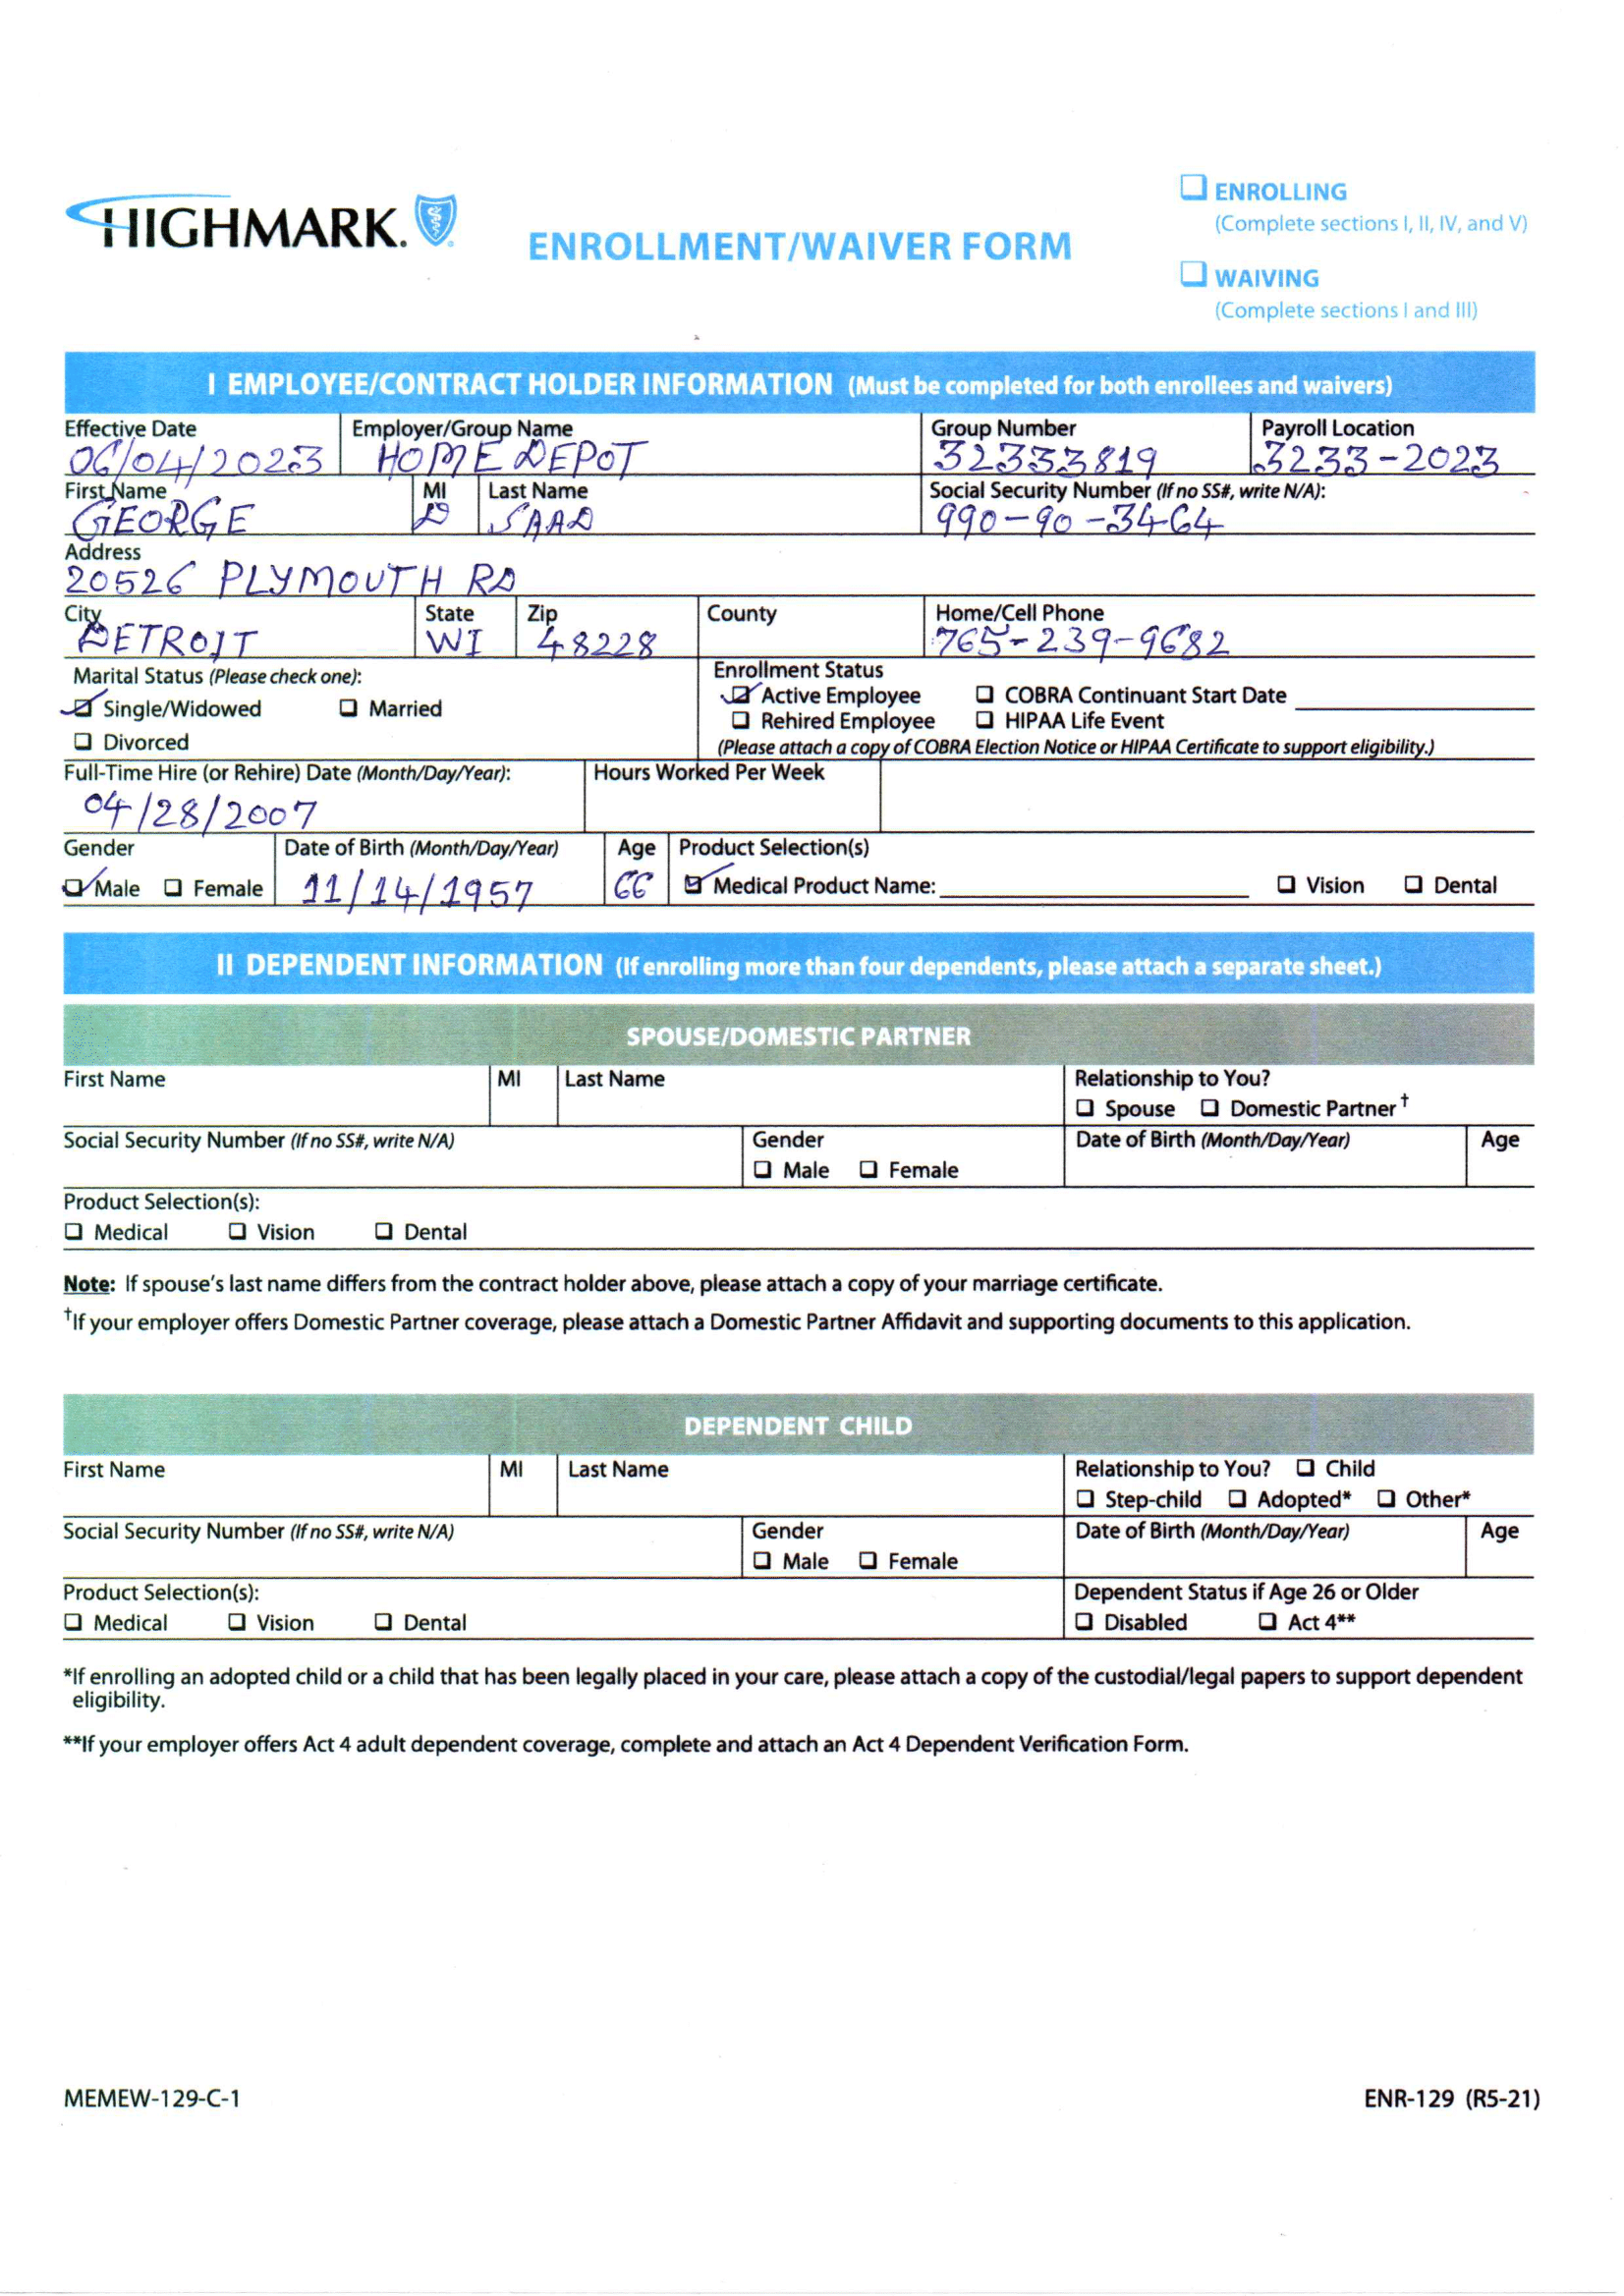 HIGHMARK.
ENROLLMENT/WAIVER FORM
ENROLLING
(Complete sections I, II, IV, and V)
WAIVING
(Complete sections I and III)
I EMPLOYEE/CONTRACT HOLDER INFORMATION (Must be completed for both enrollees and waivers)
Effective Date Employer/Group Name Group Number Payroll Location
06/04/2023 HOME DEPOT 32333819 3233-2023
First Name MI Last Name Social Security Number (If no SS#, write N/A):
GEORGE D SAAD 990-90-3464
Address
20526 PLYMOUTH RD
City State Zip County Home/Cell Phone
DETROIT WI 48228 765-239-9682
Marital Status (Please check one): Enrollment Status
Single/Widowed Married Active Employee COBRA Continuant Start Date
Divorced Rehired Employee HIPAA Life Event
(Please attach a copy of COBRA Election Notice or HIPAA Certificate to support eligibility.)
Full-Time Hire (or Rehire) Date (Month/Day/Year): Hours Worked Per Week
04/28/2007
Gender Date of Birth (Month/Day/Year) Age Product Selection(s)
Male Female 11/14/1957 66 Medical Product Name: Vision Dental
II DEPENDENT INFORMATION (If enrolling more than four dependents, please attach a separate sheet.)
SPOUSE/DOMESTIC PARTNER
First Name MI Last Name Relationship to You?
Spouse Domestic Partner†
Social Security Number (If no SS#, write N/A) Gender Date of Birth (Month/Day/Year) Age
Male Female
Product Selection(s):
Medical Vision Dental
Note: If spouse's last name differs from the contract holder above, please attach a copy of your marriage certificate.
†If your employer offers Domestic Partner coverage, please attach a Domestic Partner Affidavit and supporting documents to this application.
DEPENDENT CHILD
First Name MI Last Name Relationship to You? Child
Step-child Adopted* Other*
Social Security Number (If no SS#, write N/A) Gender Date of Birth (Month/Day/Year) Age
Male Female
Product Selection(s): Dependent Status if Age 26 or Older
Medical Vision Dental Disabled Act 4**
*If enrolling an adopted child or a child that has been legally placed in your care, please attach a copy of the custodial/legal papers to support dependent
eligibility.
**If your employer offers Act 4 adult dependent coverage, complete and attach an Act 4 Dependent Verification Form.
MEMEW-129-C-1 ENR-129 (R5-21)